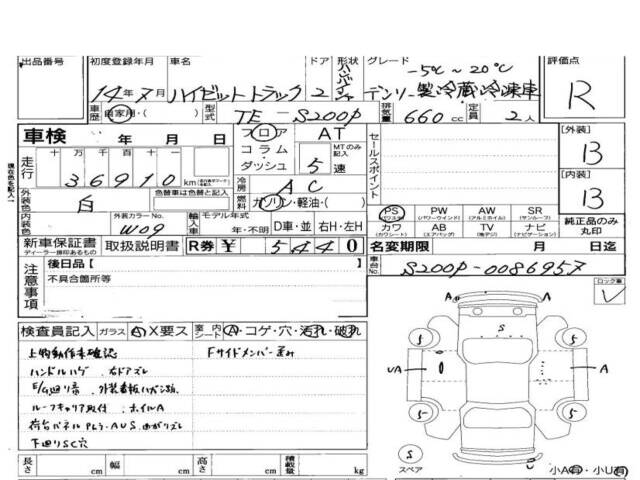 出品番号 初度登録年月 車名 ドア 形状 グレード 評価点
-5℃～20℃
14年7月 ハイゼットトラック 2 デンソー製冷蔵冷凍車 R
車歴 自家用・( ) 型式 TE-S200P 排気量 660cc 定員 2人
車検 年 月 日 フロア AT セールスポイント [外装]
走行 十万千百十一 コラム・ MTのみ記入 B
36910km ダッシュ 5速 [内装]
外装色 白 色替車は色替と記入 冷房 AC B
燃料 ガソリン・軽油・( ) PS PW AW SR
(パワステ) (パワーウインド) (アルミホイル) (サンルーフ) 純正品のみ丸印
内装色 外装カラーNo. W09 輸入車 モデル年式 年・不明 D車・並 右H・左H カワ AB TV ナビ
(カワシート) (エアバッグ) (地デジ) (ナビゲーション)
新車保証書 取扱説明書 R券 ¥ 5440 名変期限 月 日迄
ディーラー捺印あるもの
注意事項 後日品[ ] 車台No. S200P-0086957
不具合箇所等 ロック車
検査員記入 ガラス A X要ス 室内シート A・コゲ・穴・汚れ・破れ
上物動作未確認 Fサイドメンバー歪み
ハンドルハゲ 右ドアズレ
E/G廻り音
ルーフキャリア取付 ホイルA
荷台パネル
下廻りSC穴
A A
S
5 5
UA A
5 5
S
スペア U 小A有・小U有
長さ cm 幅 cm 高さ cm 積載量 kg
現在色を記入